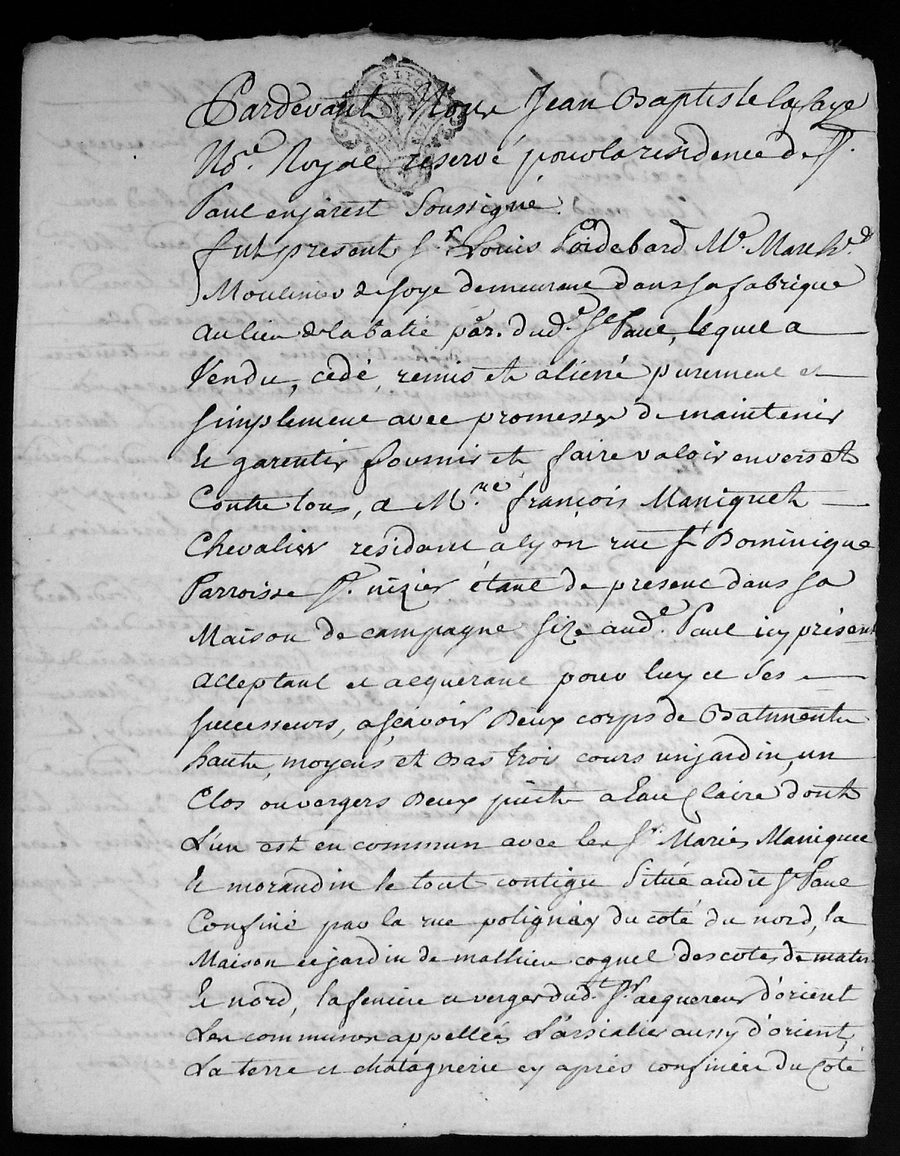 Pardevant Nous Jean Baptiste Lafaye
No.re Royal reservé pour la residence de St.
Paul en jarest Soussigné.
fut present Sr. Louis Lardebard Me. March.d
Moulinier de soye demeurant dans sa fabrique
au lieu de la batie par. dud.t St Paul, lequel a
Vendu, cedé, remis et aliené purement et
simplement avec promesses de maintenir
et garentir fournir et faire valoir envers et
Contre tous, a M.re françois Maniquet
Chevalier residant a lyon rue St Dominique
Parroisse St. nizier étant de present dans sa
Maison de campagne size aud. Paul icy présent
acceptant et acquerant pour luy et ses
successeurs, asçavoir Deux corps de Batiments
hauts, moyens et Bas trois cours un jardin, un
Clos ou vergers Deux puits a Eau Claire dont
L'un est en commun avec les Srs. Mariés Maniquet
et morandin le tout contigu Situé audit St Paul
Confiné par la rue polignais du coté du nord, la
Maison et jardin de mathieu coquel des cotés de matin
et nord, la feniere et verger dud.t Sr acquereur d'orient
Les communes appellés L'assialier aussy d'orient,
La terre et chatagnerie cy après confinée du coté
DE LYON